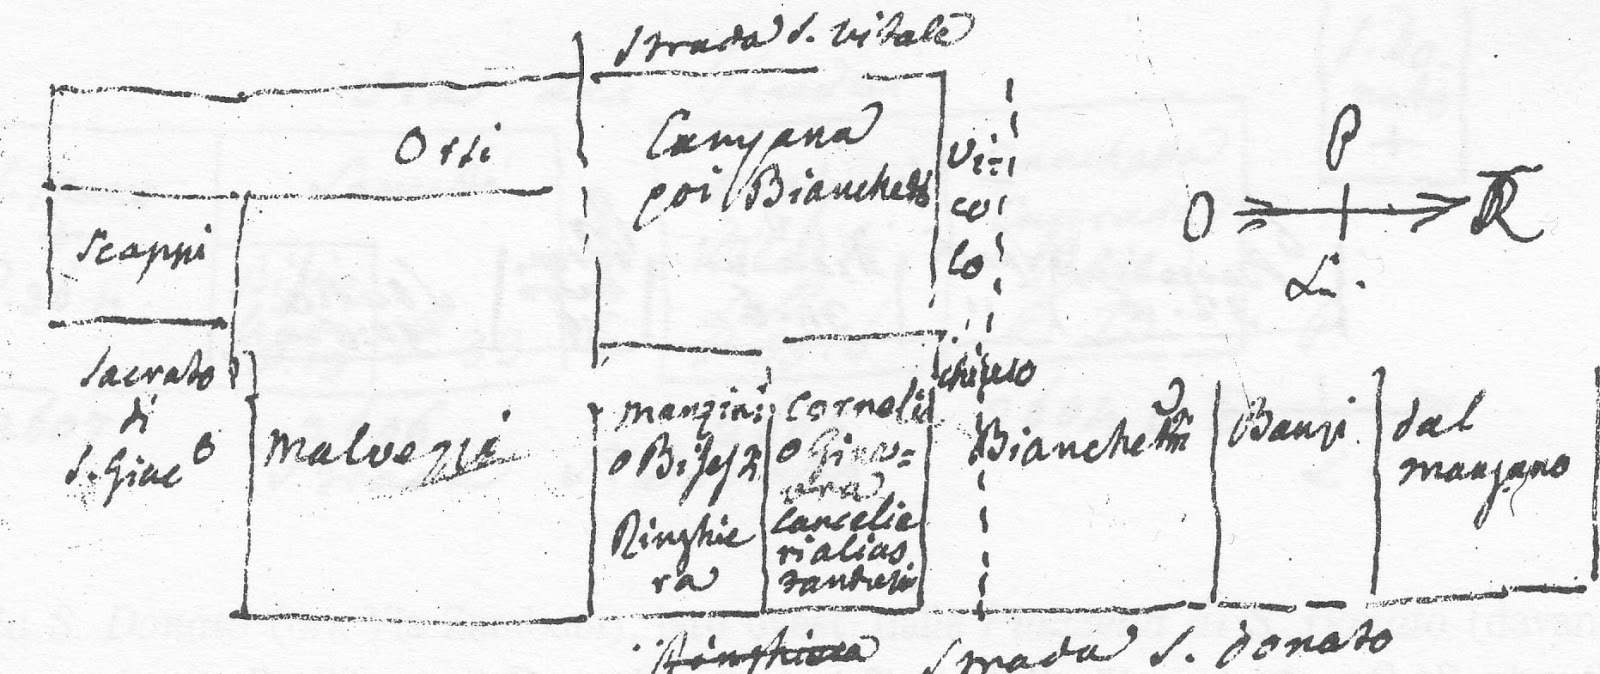 Strada S. Vitale
Orsi
Campana
poi Bianchetti
Vi=
co
lo
chiuso
P
O
R
Scappi
Sacrato
di
S. Giac°
Malvezzi
Manzini
o
Ringhie
ra
Cornelio
o Gine=
vra
Cancelie
ri alias
Bianchetti
Banzi
dal
Manzano
Ringhiera
Strada S. Donato